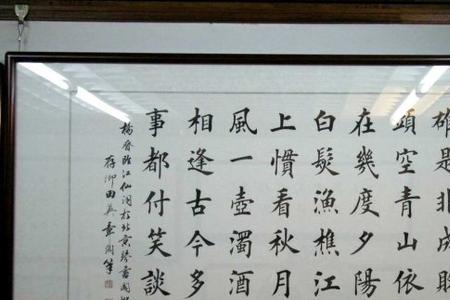 雄是非成敗
頭空青山依
在幾度夕陽
白髮漁樵江
上慣看秋月
風一壺濁酒
相逢古今多
事都付笑談
楊慎臨江仙詞於北京
田英章